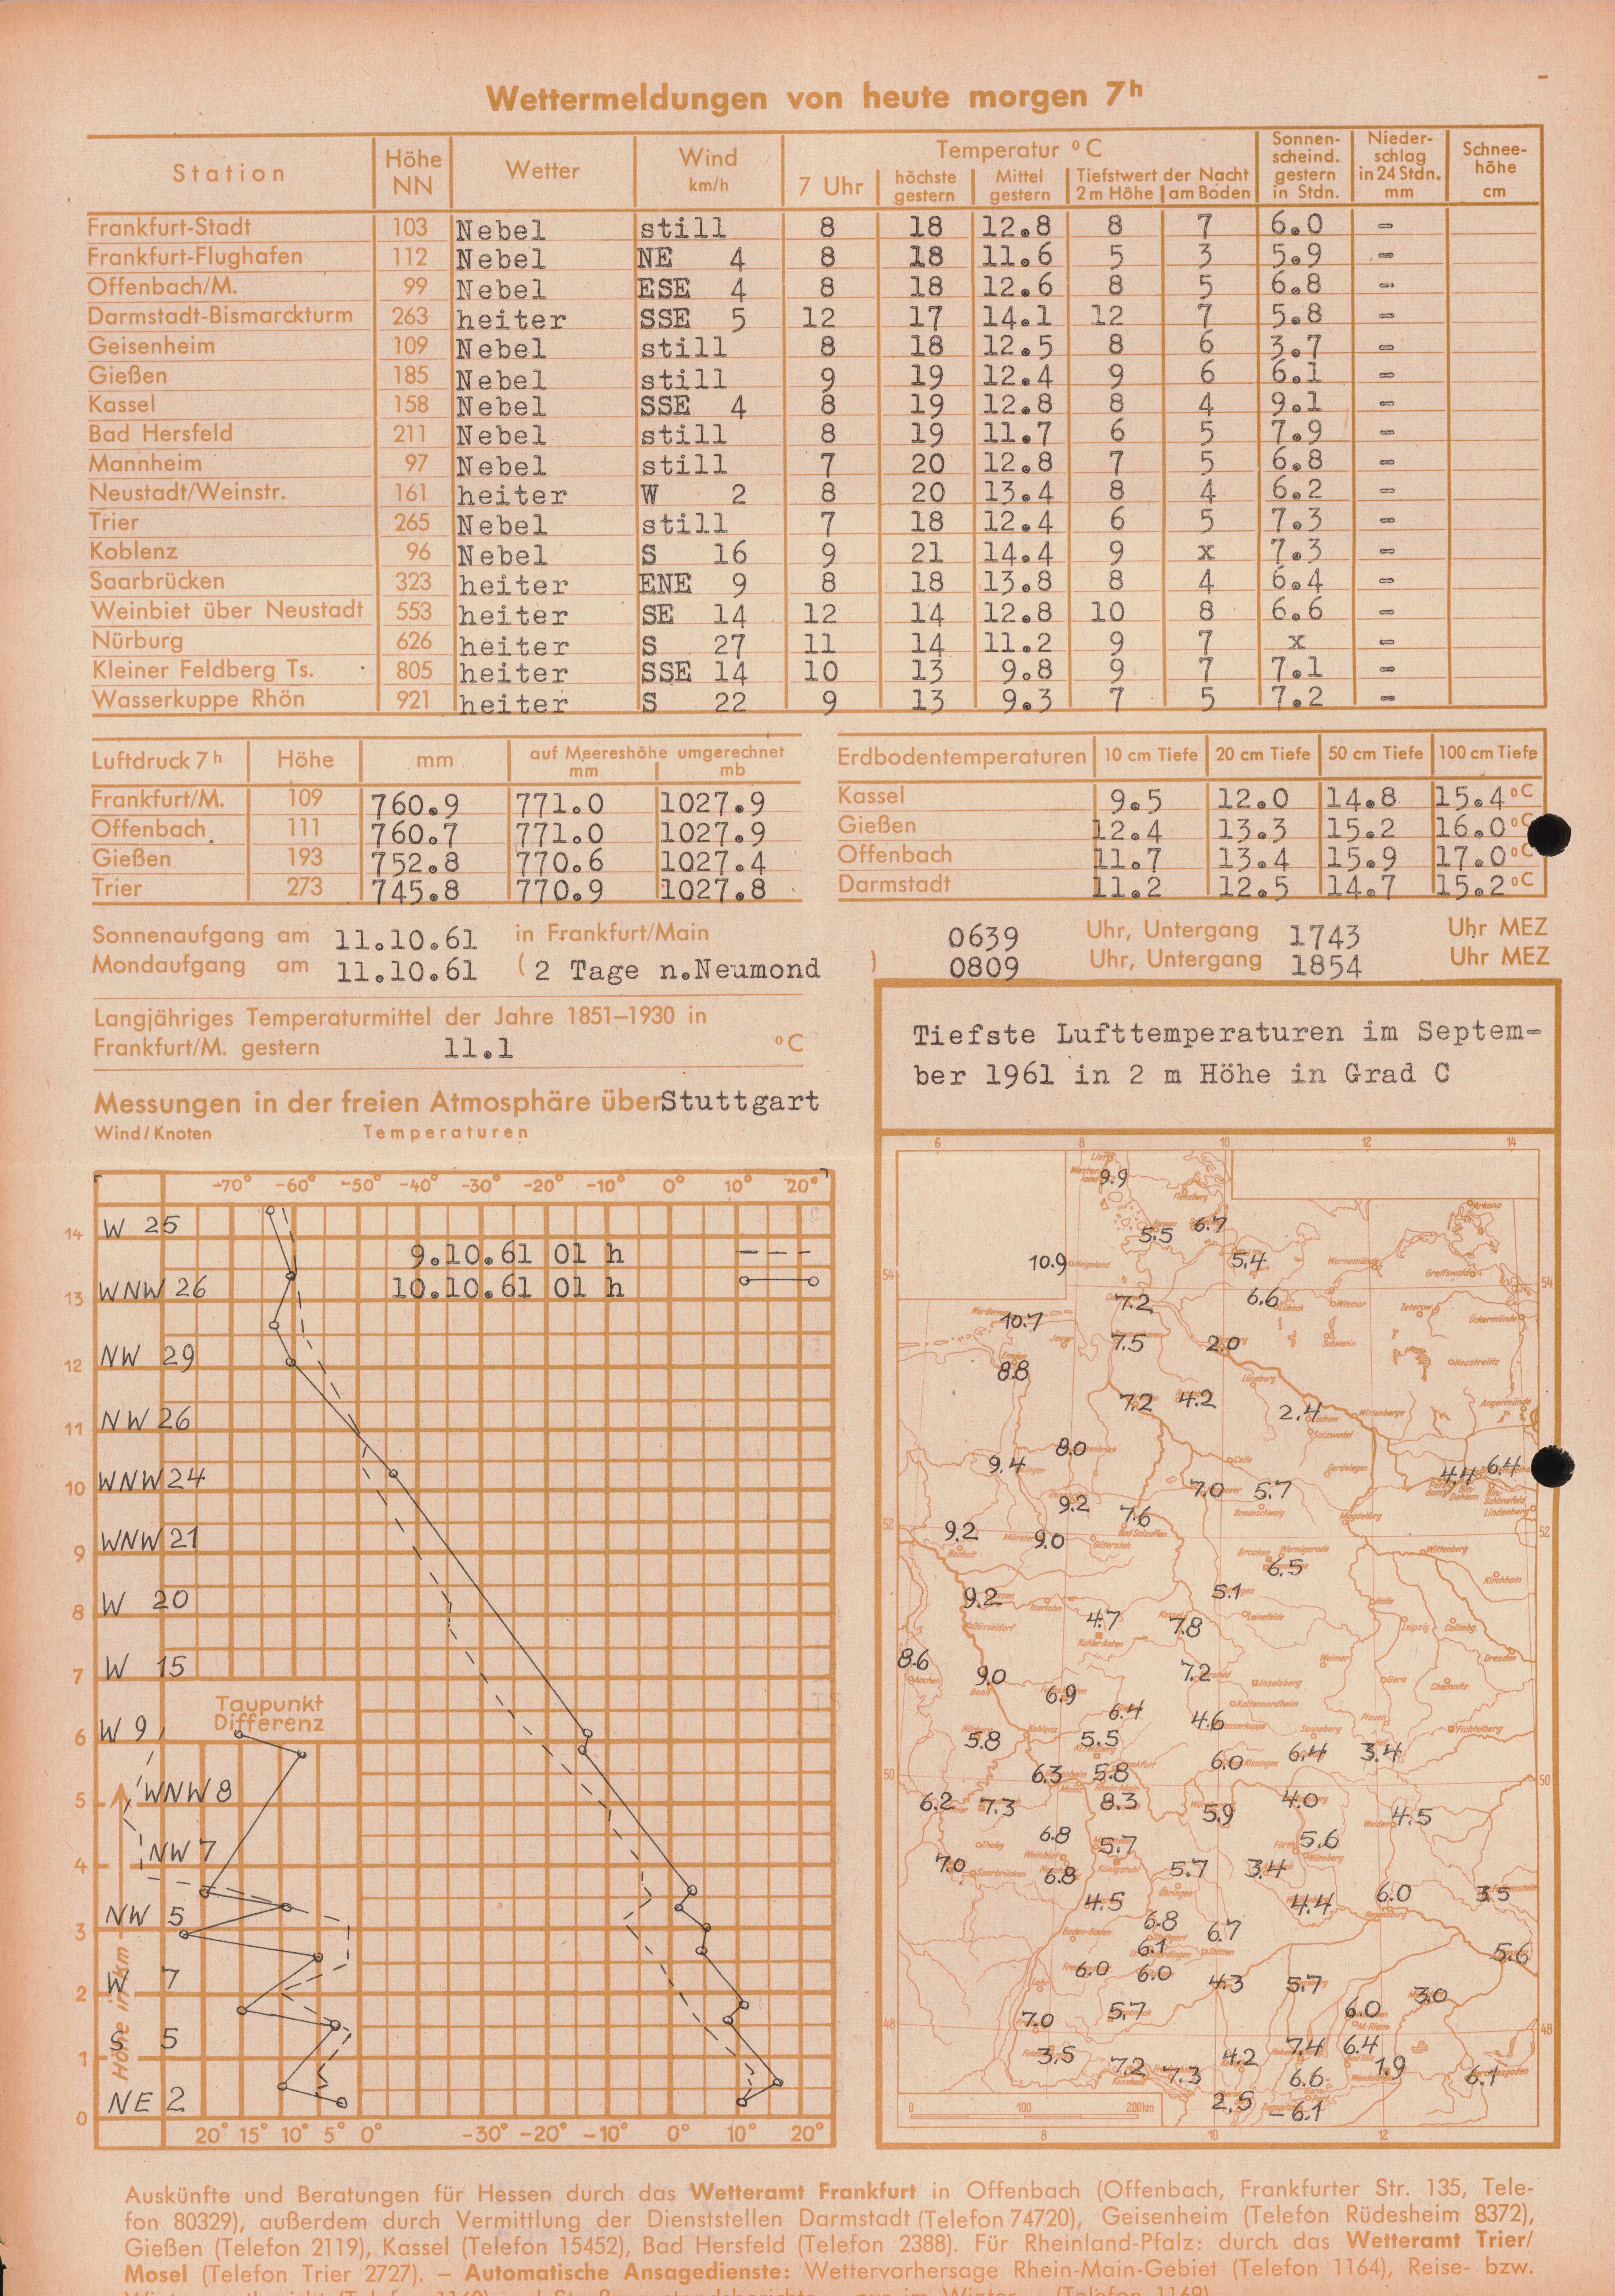 Wettermeldungen von heute morgen 7h
Station Höhe NN Wetter Wind km/h Temperatur °C Sonnenscheind. gestern in Stdn. Niederschlag in 24 Stdn. mm Schneehöhe cm
7 Uhr höchste gestern Mittel gestern Tiefstwert der Nacht 2 m Höhe am Boden
Frankfurt-Stadt 103 Nebel still 8 18 12.8 8 7 6.0 -
Frankfurt-Flughafen 112 Nebel NE 4 8 18 11.6 5 3 5.9 -
Offenbach/M. 99 Nebel ESE 4 8 18 12.6 8 5 6.8 -
Darmstadt-Bismarckturm 263 heiter SSE 5 12 17 14.1 12 7 5.8 -
Geisenheim 109 Nebel still 8 18 12.5 8 6 3.7 -
Gießen 185 Nebel still 9 19 12.4 9 6 6.1 -
Kassel 158 Nebel SSE 4 8 19 12.8 8 4 9.1 -
Bad Hersfeld 211 Nebel still 8 19 11.7 6 5 7.9 -
Mannheim 97 Nebel still 7 20 12.8 7 5 6.8 -
Neustadt/Weinstr. 161 heiter W 2 8 20 13.4 8 4 6.2 -
Trier 265 Nebel still 7 18 12.4 6 5 7.3 -
Koblenz 96 Nebel S 16 9 21 14.4 9 x 7.3 -
Saarbrücken 323 heiter ENE 9 8 18 13.8 8 4 6.4 -
Weinbiet über Neustadt 553 heiter SE 14 12 14 12.8 10 8 6.6 -
Nürburg 626 heiter S 27 11 14 11.2 9 7 x -
Kleiner Feldberg Ts. 805 heiter SSE 14 10 13 9.8 9 7 7.1 -
Wasserkuppe Rhön 921 heiter S 22 9 13 9.3 7 5 7.2 -
Luftdruck 7h Höhe mm auf Meereshöhe umgerechnet mm mb
Frankfurt/M. 109 760.9 771.0 1027.9
Offenbach 111 760.7 771.0 1027.9
Gießen 193 752.8 770.6 1027.4
Trier 273 745.8 770.9 1027.8
Erdbodentemperaturen 10 cm Tiefe 20 cm Tiefe 50 cm Tiefe 100 cm Tiefe
Kassel 9.5 12.0 14.8 15.4 °C
Gießen 12.4 13.3 15.2 16.0 °C
Offenbach 11.7 13.4 15.9 17.0 °C
Darmstadt 11.2 12.5 14.7 15.2 °C
Sonnenaufgang am 11.10.61 in Frankfurt/Main 0639 Uhr, Untergang 1743 Uhr MEZ
Mondaufgang am 11.10.61 (2 Tage n.Neumond ) 0809 Uhr, Untergang 1854 Uhr MEZ
Langjähriges Temperaturmittel der Jahre 1851–1930 in
Frankfurt/M. gestern 11.1 °C
Messungen in der freien Atmosphäre über Stuttgart
Wind/Knoten Temperaturen
-70° -60° -50° -40° -30° -20° -10° 0° 10° 20°
14 W 25
9.10.61 01 h
10.10.61 01 h
13 WNW 26
12 NW 29
11 NW 26
10 WNW 24
9 WNW 21
8 W 20
7 W 15
Taupunkt
Differenz
6 W 9
5 WNW 8
4 NW 7
3 NW 5
2 W 7
1 S 5
0 NE 2
Höhe in km
20° 15° 10° 5° 0° -30° -20° -10° 0° 10° 20°
Tiefste Lufttemperaturen im Septem-
ber 1961 in 2 m Höhe in Grad C
6 8 10 12 14
9.9
5.5 6.7
10.9 5.4
54 54
7.2 6.6
10.7
7.5 2.0
8.8
7.2 4.2 2.4
8.0
9.4 4.4 6.4
7.0 5.7
9.2 7.6
52 9.2 9.0 52
6.5
9.2 5.1
4.7 7.8
8.6 9.0 7.2
6.9
6.4 4.6
5.8 5.5 6.0 6.4 3.4
50 6.3 5.8 50
6.2 7.3 8.3 5.9 4.0 4.5
6.8 5.7 5.6
7.0 6.8 5.7 3.4
4.5 4.4 6.0 3.5
6.8 6.7
6.1 5.6
6.0 6.0 4.3 5.7 3.0
48 7.0 5.7 6.0 48
3.5 4.2 7.4 6.4
7.2 7.3 6.6 1.9 6.1
2.5 -6.1
0 100 200km
8 10 12
Auskünfte und Beratungen für Hessen durch das Wetteramt Frankfurt in Offenbach (Offenbach, Frankfurter Str. 135, Tele-
fon 80329), außerdem durch Vermittlung der Dienststellen Darmstadt (Telefon 74720), Geisenheim (Telefon Rüdesheim 8372),
Gießen (Telefon 2119), Kassel (Telefon 15452), Bad Hersfeld (Telefon 2388). Für Rheinland-Pfalz: durch das Wetteramt Trier/
Mosel (Telefon Trier 2727). – Automatische Ansagedienste: Wettervorhersage Rhein-Main-Gebiet (Telefon 1164), Reise- bzw.